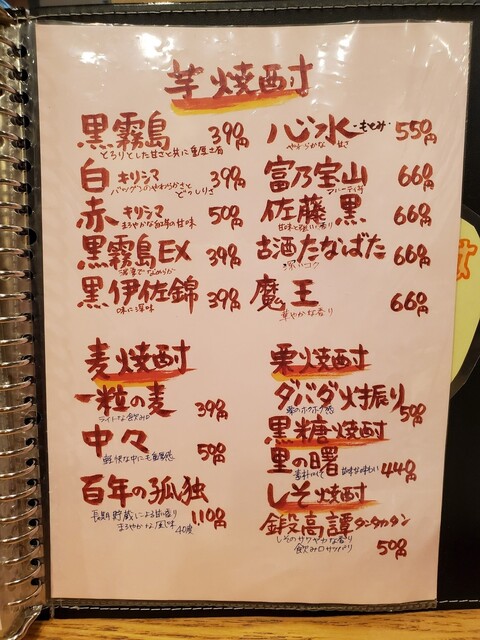 芋焼酎
黒霧島 390円
とろりとした甘さと共に重厚な香
白キリシマ 390円
どっしりさ
赤キリシマ 500円
まろやかな
黒霧島EX 390円
黒伊佐錦 390円
味に深味
心水 -もとみ- 550円
やわらかな 甘さ
富乃宝山 660円
フルーティな
佐藤黒 660円
甘味と強い香り
古酒たなばた 660円
深いコク
魔王 660円
華やかな香り
麦焼酎
一粒の麦 390円
ライトな飲み口
中々 500円
軽快な中にも重量感
百年の孤独 1,100円
長期貯蔵による甘い香り
まろやかな風味 40度
栗焼酎
ダバダ火振り 500円
栗のホクホク感
黒糖焼酎
里の曙 440円
しそ焼酎
鍛高譚 タンタカタン 500円
しそのサワヤカな香り
飲み口サッパリ